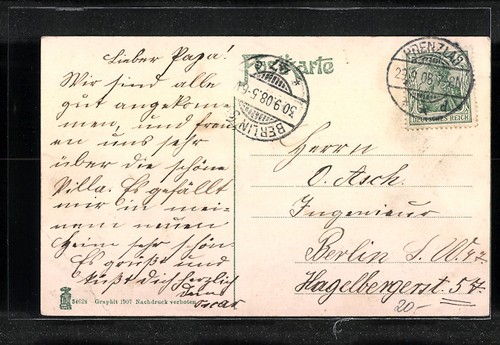 Lieber Papa!
Wir sind alle
gut angekom-
men, und freu
en uns sehr
über die schöne
Villa. Es gefällt
mir in mei-
nem neuen
Heim sehr schön
Es grüßt und
küßt dich herzlich
dein
Oscar
34624 Graphit 1907 Nachdruck verboten
Postkarte
BERLIN
30.9.08.5-6
47
29.9.08
DEUTSCHES REICH
Herrn
O. Asch.
Ingenieur
Berlin S. W. 47
Hagelbergerst. 54
20-